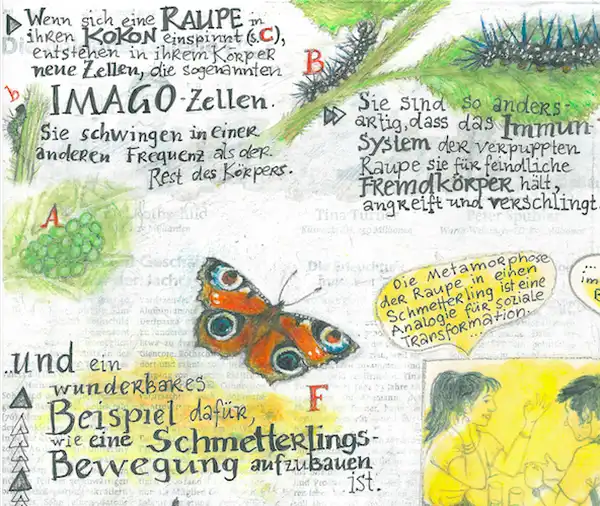 Wenn sich eine RAUPE in
ihren KOKON einspinnt (s.C),
entstehen in ihrem Körper
neue Zellen, die sogenannten
IMAGO-Zellen.
Sie schwingen in einer
anderen Frequenz als der
Rest des Körpers.
b
B
Sie sind so anders-
artig, dass das Immun
System der verpuppten
Raupe sie für feindliche
Fremdkörper hält,
angreift und verschlingt.
A
Tina Turner
Die Metamorphose
der Raupe in einen
Schmetterling ist eine
Analogie für soziale
Transformation.
...
...
im
F
..und ein
wunderbares
Beispiel dafür,
wie eine Schmetterlings-
Bewegung aufzubauen
ist.